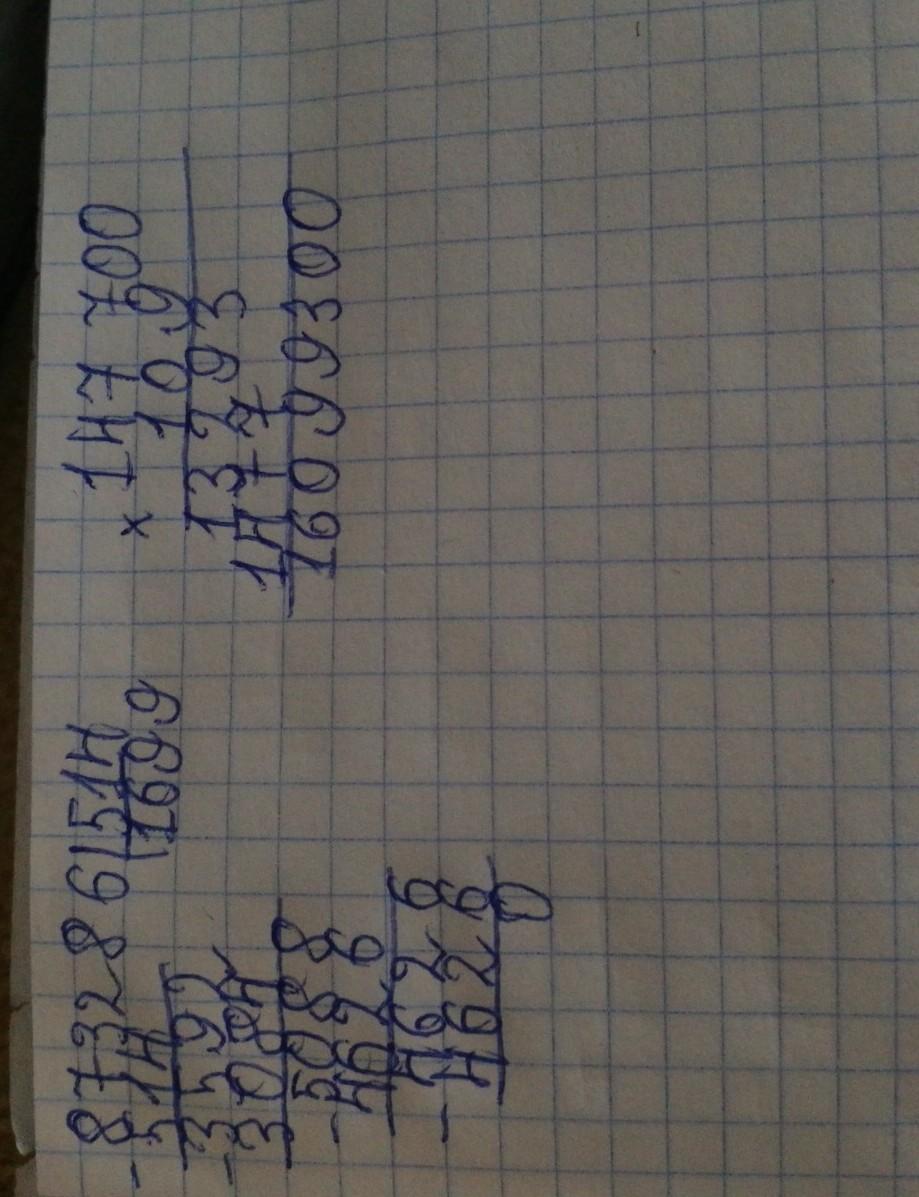 873286|514
- 514 |1699
3592
- 3084
5088
- 4626
4626
- 4626
0
× 147700
109
13293
1477
16099300